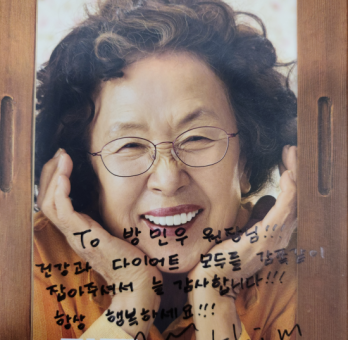 To 방민우 원장님!!!
건강과 다이어트 모두를
잡아주셔서 늘 감사합니다!!!
항상 행복하세요!!!